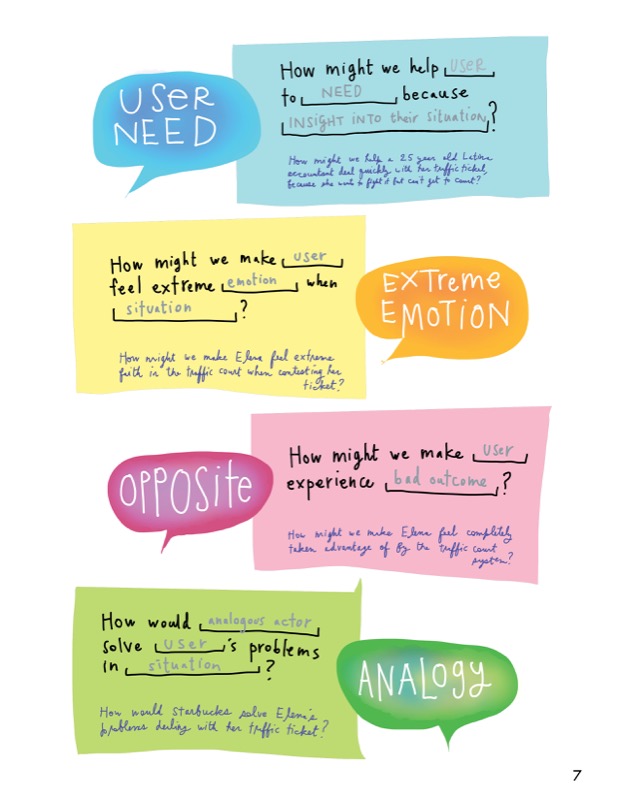 USER
NEED
How might we help USER
to NEED because
INSIGHT INTO their situation?
How might we help a 25 year old Latina
accountant deal quickly with her traffic ticket,
because she wants to fight it but can't get to court?
How might we make user
feel extreme emotion when
situation?
How might we make Elena feel extreme
faith in the traffic court when contesting her
ticket?
EXTreme
EMOTION
OPPOSite
How might we make user
experience bad outcome?
How might we make Elena feel completely
taken advantage of by the traffic court
system?
How would analogous actor
solve user's problems
in situation?
How would Starbucks solve Elena's
problems dealing with her traffic ticket?
ANALOGY
7